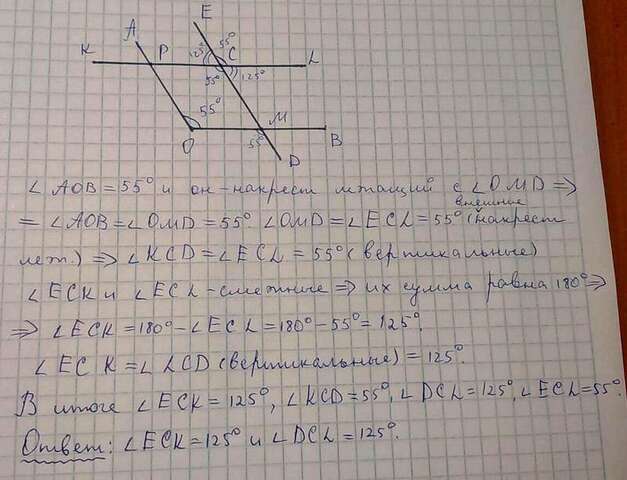 E
A
K P 125° 55° C L
55° 125°
55°
O M B
55° D
∠AOB=55° и он-накрест лежащий с ∠OMD ⇒
= ∠AOB=∠OMD=55°. ∠OMD=∠ECL=55° (внешние накрест
леж.) ⇒ ∠KCD=∠ECL=55° (вертикальные)
∠ECK и ∠ECL-смежные ⇒ их сумма равна 180° ⇒
⇒ ∠ECK=180°-∠ECL=180°-55°=125°.
∠ECK=∠LCD (вертикальные)=125°.
В итоге ∠ECK=125°, ∠KCD=55°, ∠DCL=125°, ∠ECL=55°.
Ответ: ∠ECK=125° и ∠DCL=125°.